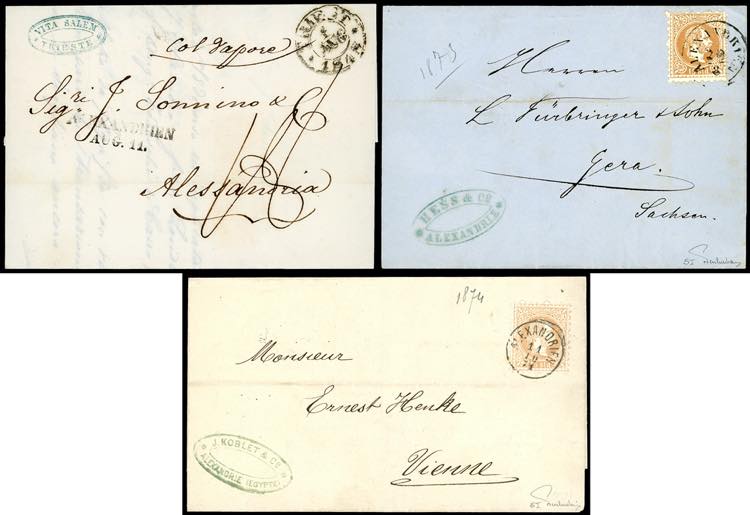 VITA SALEM
TRIESTE
TRIEST
AUG
Col Vapore
Sigri J. Sonnino & C
ALEXANDRIEN
AUG. 11.
Alessandria
1875
ALEXANDRIEN
Herren
L Fürbringer & Sohn
Gera.
Sachsen.
HESS & Co
ALEXANDRIE
1874
ALEXANDRIEN
11
10
74
Monsieur
Ernest Henke
Vienne
J. KOBLET & Co
ALEXANDRIE (EGYPTE)